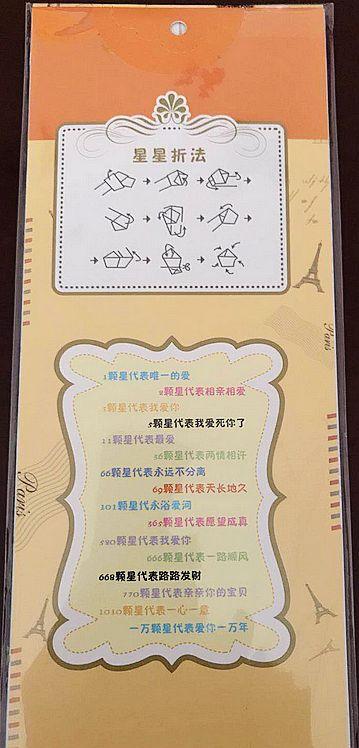 星星折法
Paris
1颗星代表唯一的爱
2颗星代表相亲相爱
3颗星代表我爱你
5颗星代表我爱死你了
11颗星代表最爱
36颗星代表两情相许
66颗星代表永远不分离
Paris
69颗星代表天长地久
101颗星代永浴爱河
365颗星代表愿望成真
520颗星代表我爱你
666颗星代表一路顺风
668颗星代表路路发财
770颗星代表亲亲你的宝贝
1010颗星代表一心一意
一万颗星代表爱你一万年